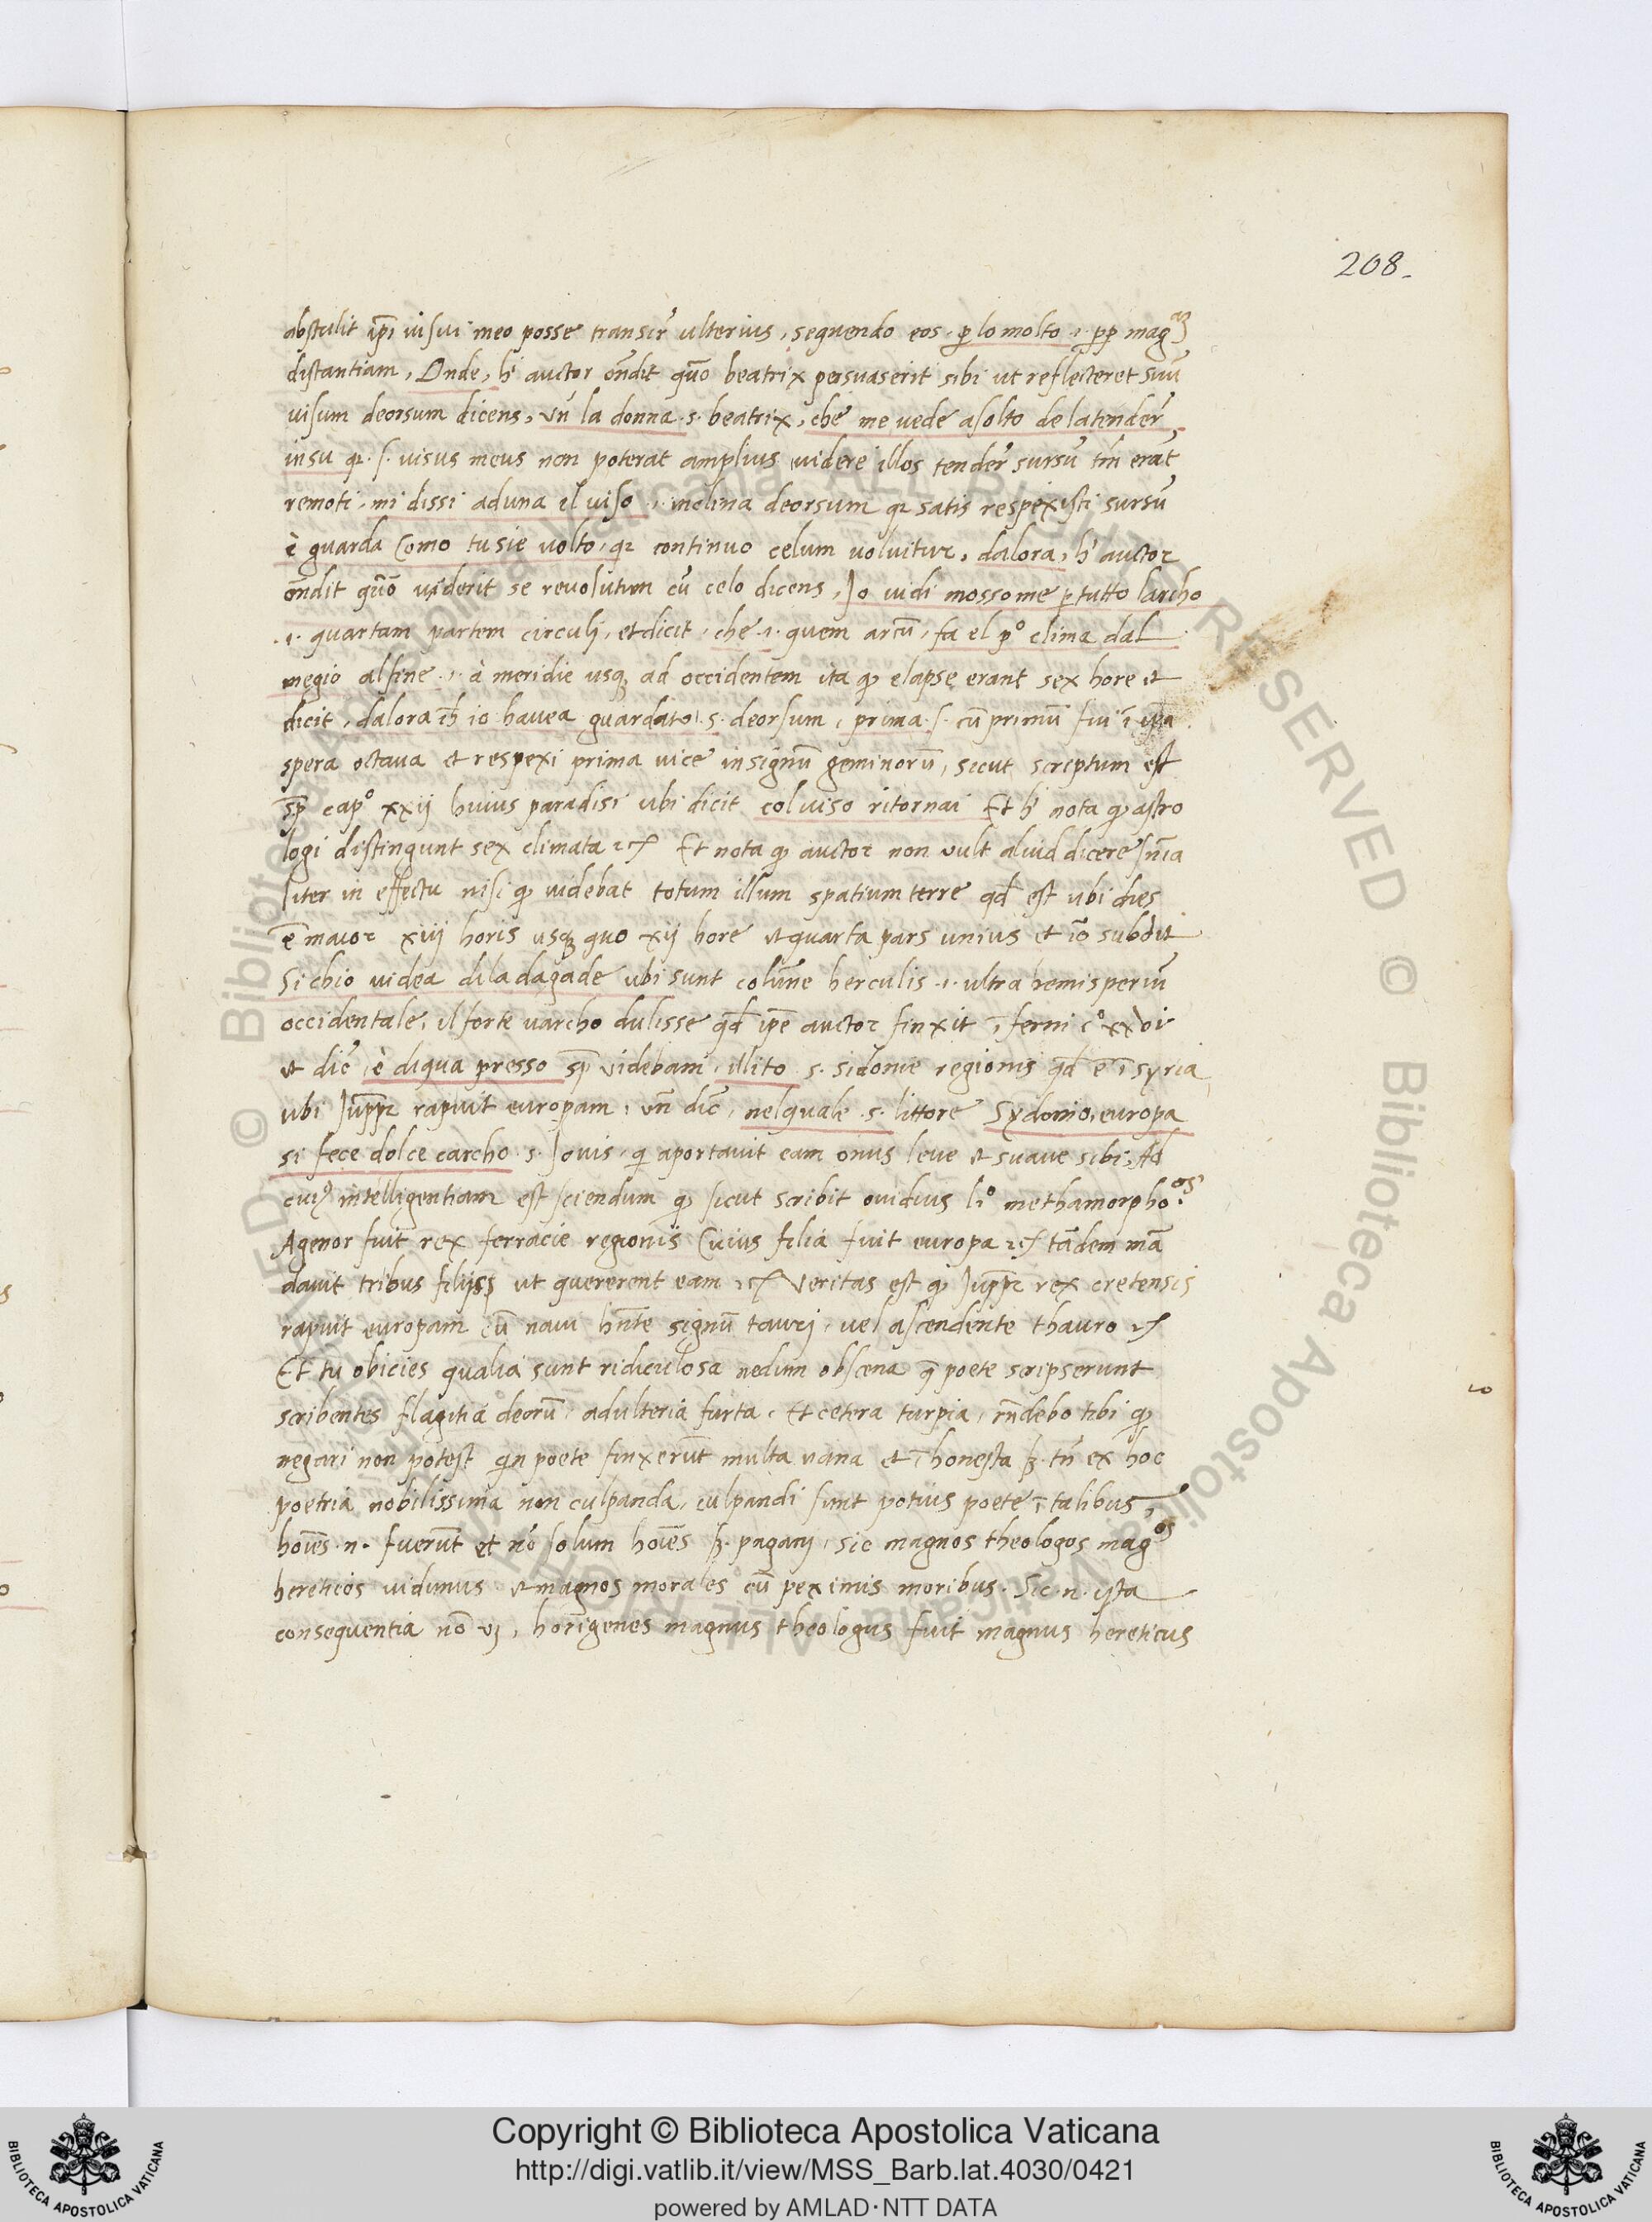 208.
abstulit ip̄i uisui meo posse transir̃ ulterius, sequendo eos. ꝑ lo molto .i. ꝓp mag^am
distantiam, Onde, h' auctor on̄dit quō beatrix persuaserit sibi ut reflecteret suū
uisum deorsum dicens, Vn̄ la donna .s. beatrix, che me uede asolto de latender̃
insu qꝛ .s. uisus meus non poterat amplius uidere illos tender̃ sursū tm̄ erāt
remoti, mi dissi aduna el uiso .i. inclina deorsum qꝛ satis respexisti sursū
è guarda Como tu sie uolto, qꝛ continuo celum uoluitur, dalora, h' auctor
on̄dit quō uiderit se reuolutum cū celo dicens, Jo uidi mosso me ꝑ tutto larcho
.i. quartam partem circulj, et dicit, che .i. quem arcū, fa el p° clima dal
megio alfine .i. à meridie usqꝫ ad occidentem ita qꝫ elapse erant sex hore et
dicit, dalora ch̄ io hauea guardato .s. deorsum, prima .s. cū primū fui ī ip̄a
spera octaua et respexi prima uice in signū geminorū, sicut scriptum est
sp̄ cap° xxij huius paradisi ubi dicit col uiso ritornai Et h' nota qꝫ astro
logi distingunt sex climata ⁊cꝭ Et nota qꝫ auctor non vult aliud dicere sn̄ia
liter in effectu nisi qꝫ uidebat totum illum spatium terre qd̄ est ubi dies
ē maior xiij horis usqꝫ quo xij hore et quarta pars unius et iō subdit
Si chio uidea dila da gade ubi sunt colūne herculis .i. ultra hemisperiū
occidentale, il forte uarcho dulisse qd̄ ip̄e auctor finxit, ī ferni c° xxvi
et dic̄, è di qua presso sp̄ videbam, illito .s. sidonie regionis qd̄ ē ī syria,
ubi Jupp̄r rapuit europam, vn̄ dic̄, nelquale .s. littore Sydonio, europa
si fece dolce carcho .s. Jouis, qꝛ aportauit eam onus leue et suaue sibi, Ad
cuiꝰ intelligentiam est sciendum qꝫ sicut scribit ouidius li° methamorpho^os.
Agenor fuit rex ferracie regionis Cuius filia fuit europa ⁊cꝭ tādem mā
dauit tribus filijs ut quererent eam ⁊cꝭ Veritas est qꝫ Jupp̄r rex cretensis
rapuit europam cū naui hn̄te signū taurj, uel ascendente thauro ⁊cꝭ
Et tu obicies qualia sunt ridiculosa nedum obscena q̄ poete scripserunt
scribentes flagitia deorū, adulteria furta. Et cetera turpia, rn̄debo tibi qꝫ
negari non potest quin poete finxerūt multa uana et ī honesta sꝫ tn̄ ex hoc
poetria nobilissima non culpanda, culpandi sunt potius poete ī talibus,
hoīes .n. fuerūt et nō solum hoīes sꝫ paganj, sic magnos theologos mag^os
hereticos uidimus et magnos morales cū peximis moribus. Sic .n. ista
consequentia nō uꝫ, horigenes magnus theologus fuit magnus hereticus
Copyright © Biblioteca Apostolica Vaticana
http://digi.vatlib.it/view/MSS_Barb.lat.4030/0421
powered by AMLAD·NTT DATA
BIBLIOTECA APOSTOLICA VATICANA
BIBLIOTECA APOSTOLICA VATICANA